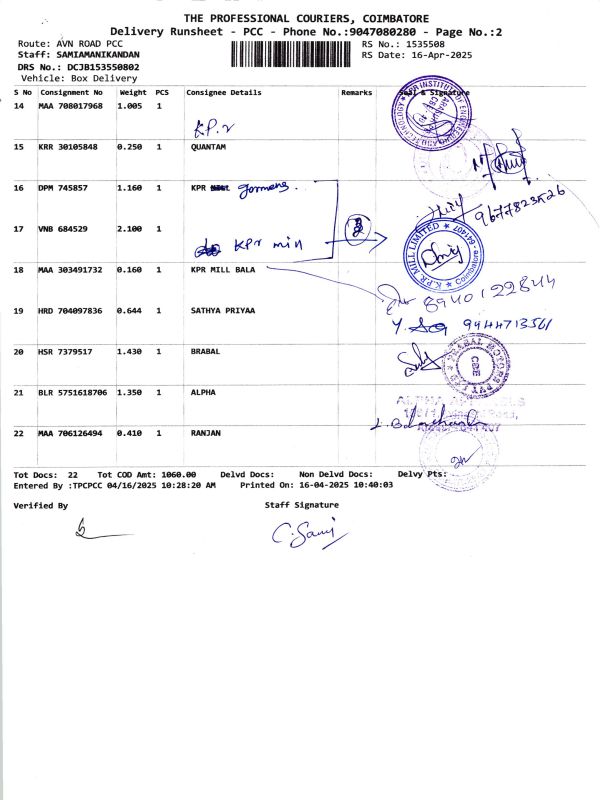 THE PROFESSIONAL COURIERS, COIMBATORE
Delivery Runsheet - PCC - Phone No.:9047080280 - Page No.:2
Route: AVN ROAD PCC RS No.: 1535508
Staff: SAMIAMANIKANDAN RS Date: 16-Apr-2025
DRS No.: DCJB153550802
Vehicle: Box Delivery
S No Consignment No Weight PCS Consignee Details Remarks Seal & Signature
14 MAA 708017968 1.005 1
KP.r
15 KRR 30105848 0.250 1 QUANTAM
16 DPM 745857 1.160 1 KPR
9677823526
17 VNB 684529 2.100 1
KPr min
K.P.R. MILL LIMITED 641407 Coimbatore
18 MAA 303491732 0.160 1 KPR MILL BALA
8940122844
19 HRD 704097836 0.644 1 SATHYA PRIYAA
9944713561
20 HSR 7379517 1.430 1 BRABAL
CBE
21 BLR 5751618706 1.350 1 ALPHA
22 MAA 706126494 0.410 1 RANJAN
Tot Docs: 22 Tot COD Amt: 1060.00 Delvd Docs: Non Delvd Docs: Delvy Pts:
Entered By :TPCPCC 04/16/2025 10:28:20 AM Printed On: 16-04-2025 10:40:03
Verified By Staff Signature
C.Sami